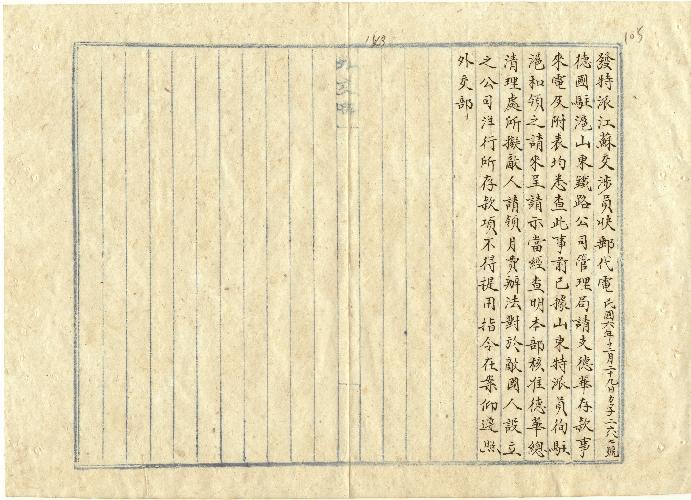 105
143
發特派江蘇交涉員快郵代電 民國六年十二月二十九日 字二六七號
德國駐滬山東鐵路公司管理局請支德華存款事
來電及附表均悉查此事前已據山東特派員向駐
滬和領之請來呈請示當經查明本部核准德華總
清理處所擬敵人請領月費辦法對於敵國人設立
之公司洋行所存款項不得提用指令在案仰遵照
外交部
外交部